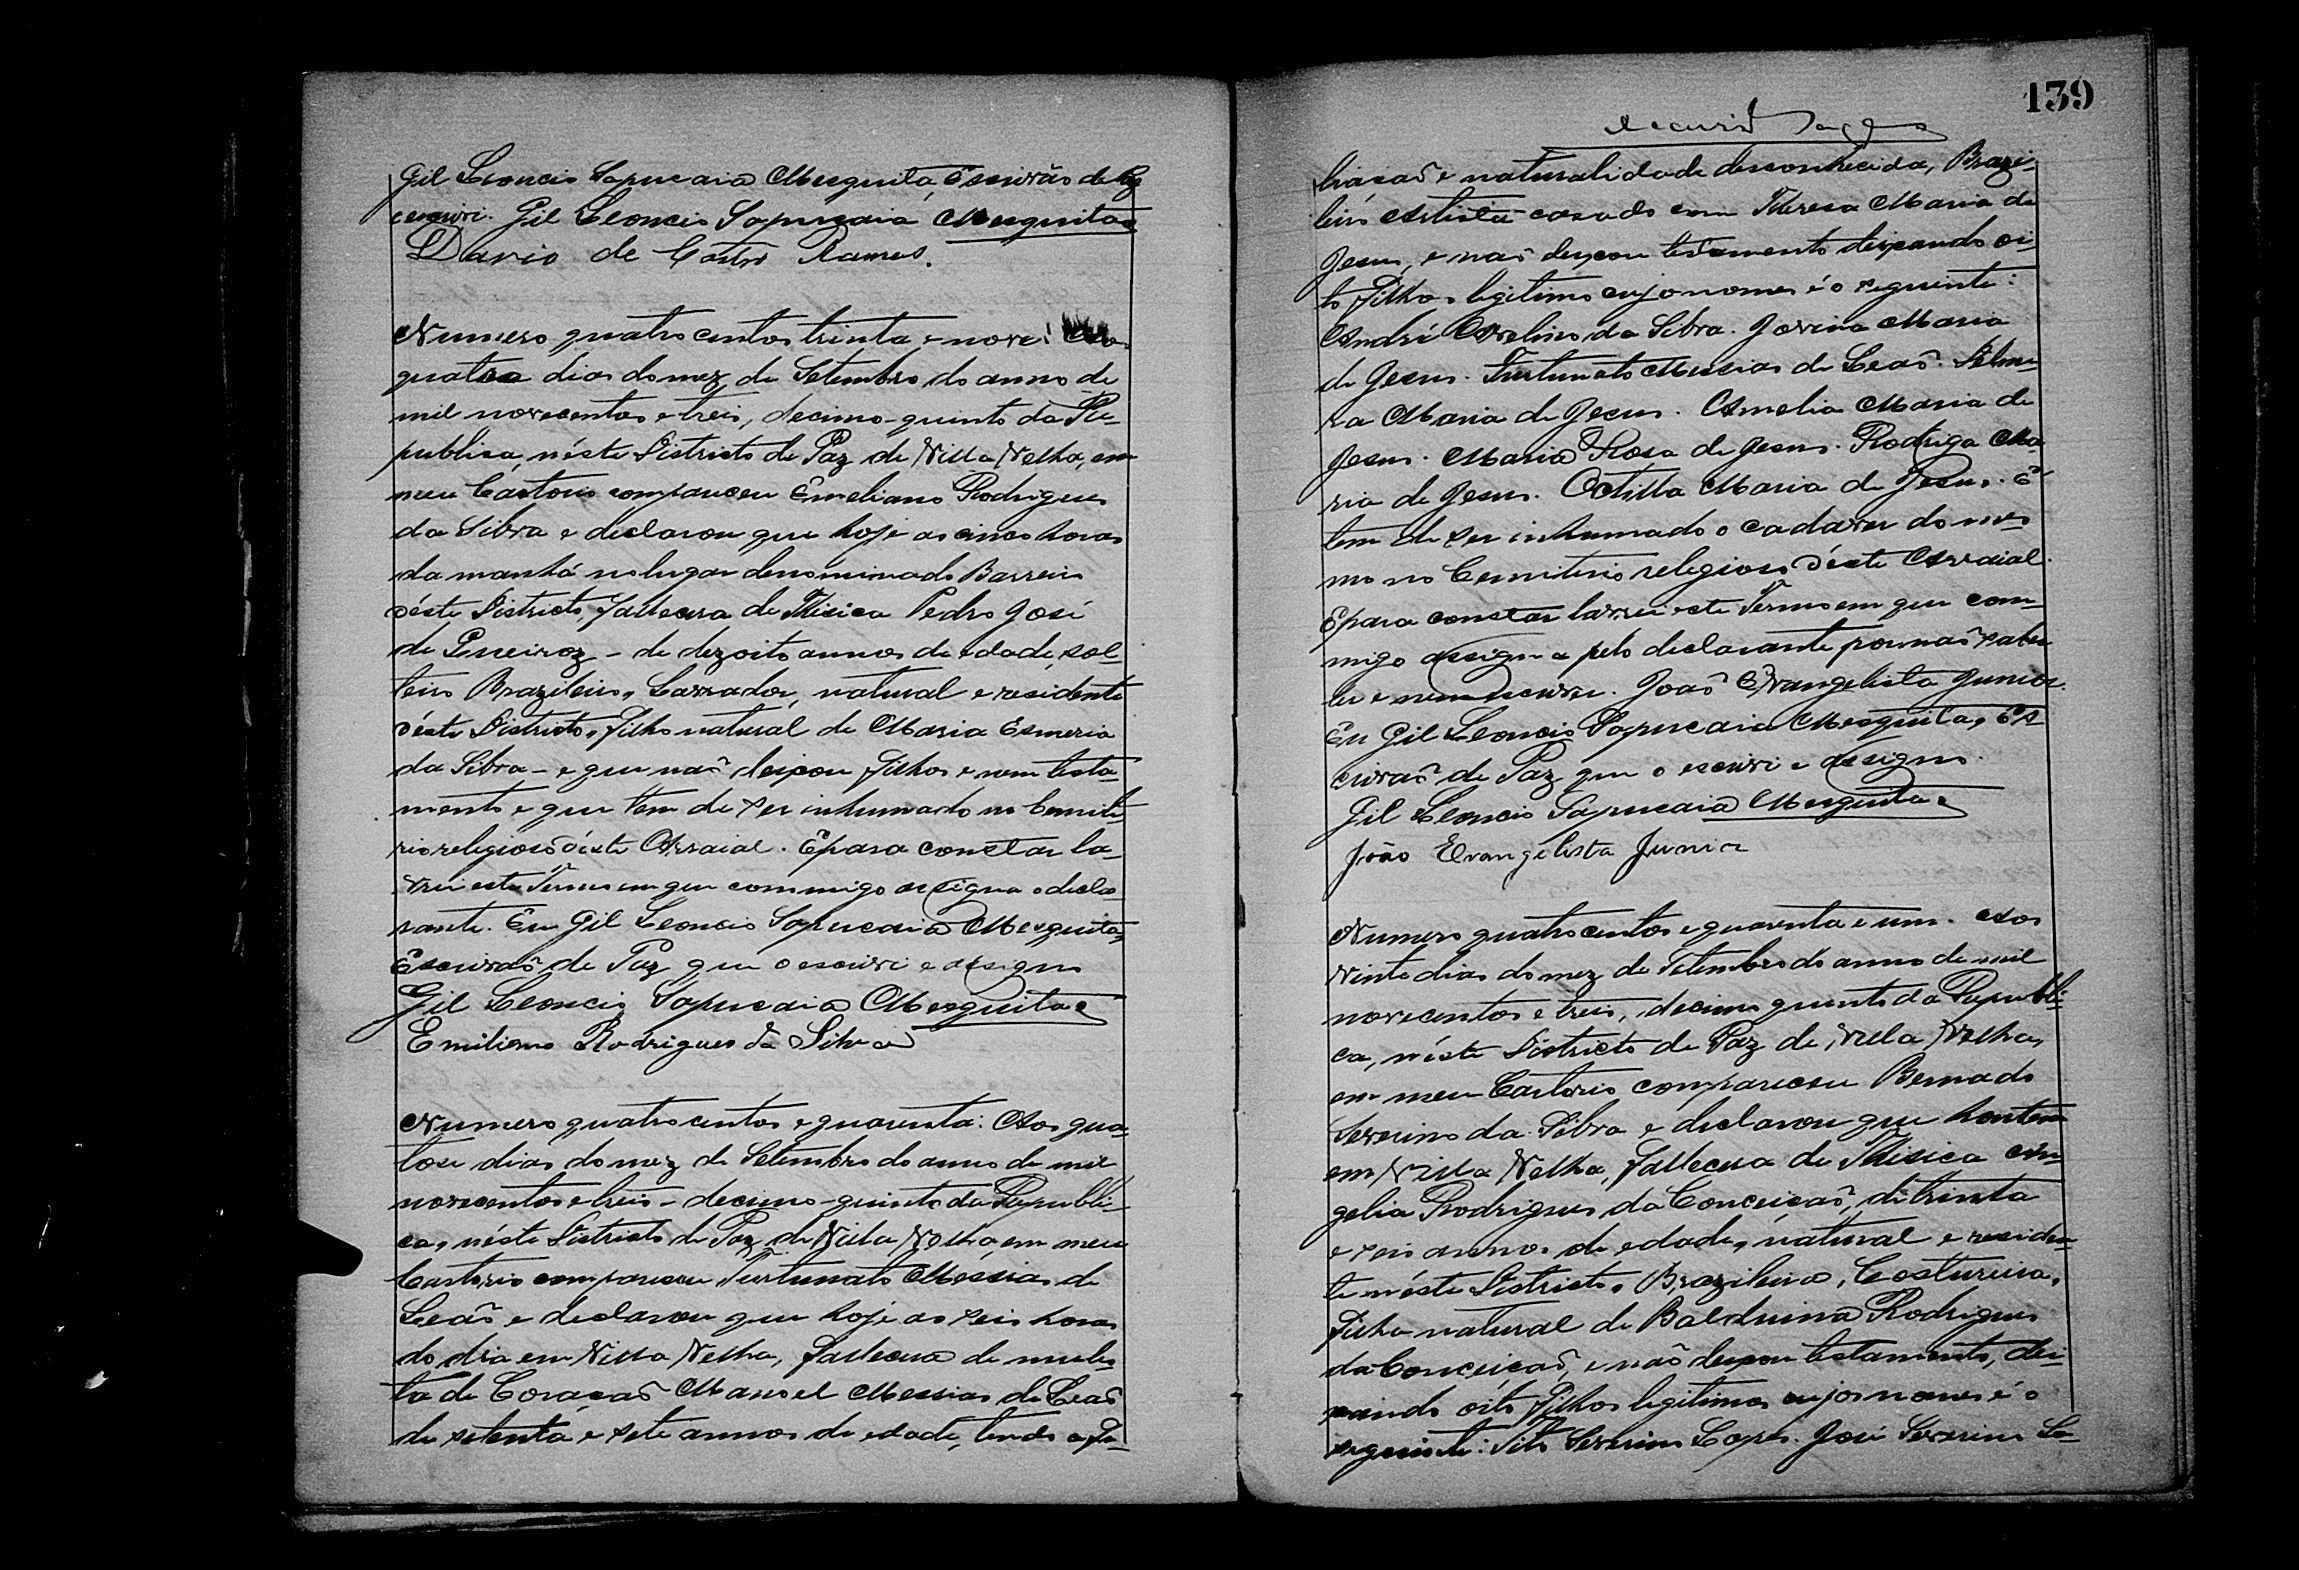 Gil Leoncio Sapucaia Mesquita, Escrivão de Paz
escrivi. Gil Leoncio Sapucaia Mesquita
Dario de Castro Ramos.
Numero quatro centos trinta e nove: Aos
quatro dias do mez de Setembro do anno de
mil novecentos e treis, decimo-quinto da Re-
publica, néste Districto de Paz de Villa Velha, em
meu Cartorio compareceu Emeliano Rodrigues
da Silva e declarou que hoje as cinco horas
da manhã no lugar denominado Barreiro
déste Districto, fallecera de Thisica Pedro José
de Queiroz - de dezoito annos de edade, sol-
teiro Brazileiro, Lavrador, natural e residente
déste Districto, filho natural de Maria Esmeria
da Silva - e que não deixou filhos e nem testa-
mento e que tem de ser inhumado no Cemite-
rio religioso déste Arraial. E para constar la-
vrei este Termo em que commigo assigna o decla-
rante. Eu Gil Leoncio Sapucaia Mesquita,
Escrivaõ de Paz que o escrivi e assigno
Gil Leoncio Sapucaia Mesquita
Emiliano Rodrigues da Silva
Numero quatro centos e quarenta: Aos qua-
torse dias do mez de Setembro do anno de mil
novecentos e treis - decimo-quinto da Republi-
ca, néste Districto de Paz de Villa Velha, em meu
Cartorio compareceu Furtunato Messias de
Leaõ e declarou que hoje as seis horas
do dia em Villa Velha, fallecera de moles-
ta de Coraçaõ Manoel Messias de Leaõ
de setenta e sete annos de edade, tendo a fi-
139
liacaõ e naturalidade desconhecida, Brazi-
leiro Artista casado com Theresa Maria de
Jesus, e naõ deixou testamento deixando oi-
to filhos legitimos cujo nomes é o seguinte:
André Avelino da Silva. Jovina Maria
de Jesus. Furtunato Messias de Leaõ.
ra Maria de Jesus. Amelia Maria de
Jesus. Maria Rosa de Jesus. Rodriga Ma-
ria de Jesus. Octilla Maria de Jesus. E
tem de ser inhumado o cadaver do mes-
mo no Cemiterio religioso déste Arraial.
E para constar lavrei este Termo em que com-
migo assigna pelo declarante por naõ saber
ler e nem escrever. Joaõ Evangelista Junior.
Eu Gil Leoncio Sapucaia Mesquita, Es-
crivaõ de Paz que o escrivi e assigno.
Gil Leoncio Sapucaia Mesquita
João Evangelista Junior
Numero quatro centos e quarenta e um. Aos
vinte dias do mez de Setembro do anno de mil
novecentos e treis, decimo quinto da Republi-
ca, néste Districto de Paz de Villa Velha,
em meu Cartorio compareceu Bernado
Severino da Silva e declarou que hontem
em Villa Velha, fallecera de Thisica An-
gelia Rodrigues da Conceiçaõ, de trinta
e seis annos de edade, natural e residen-
te néste Districto, Brazileira, Costureira,
filha natural de Balduina Rodrigues
da Conceiçaõ, e naõ deixou testamento, dei-
xando oito filhos legitimos cujos nomes é o
seguinte: Tito Severino Lopes. José Severino Lo-